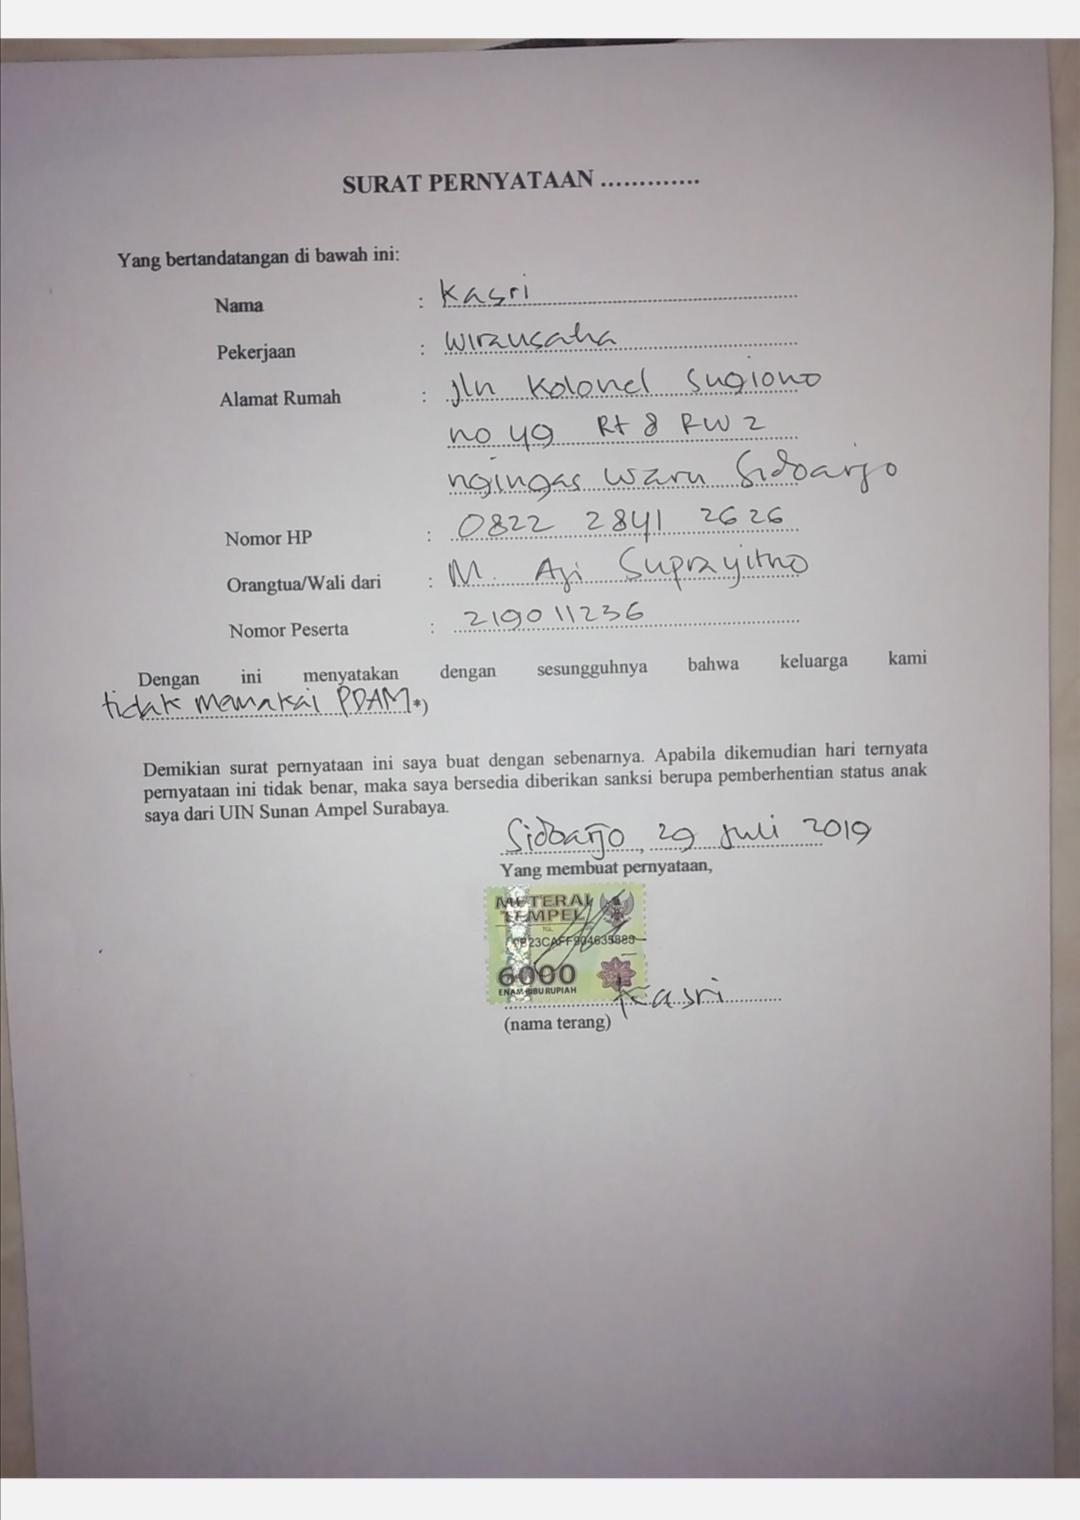 SURAT PERNYATAAN .............
Yang bertandatangan di bawah ini:
Nama : Kasri
Pekerjaan : Wirausaha
Alamat Rumah : Jln Kolonel Sugiono
no 49 Rt 8 RW 2
ngingas waru Sidoarjo
Nomor HP : 0822 2841 2626
Orangtua/Wali dari : M. Aji Suprayitno
Nomor Peserta : 219011236
Dengan ini menyatakan dengan sesungguhnya bahwa keluarga kami
tidak memakai PDAM *)
Demikian surat pernyataan ini saya buat dengan sebenarnya. Apabila dikemudian hari ternyata
pernyataan ini tidak benar, maka saya bersedia diberikan sanksi berupa pemberhentian status anak
saya dari UIN Sunan Ampel Surabaya.
Sidoarjo, 29 Juli 2019
Yang membuat pernyataan,
METERAI
TEMPEL
TGL.
6000
ENAM RIBU RUPIAH
Kasri
(nama terang)